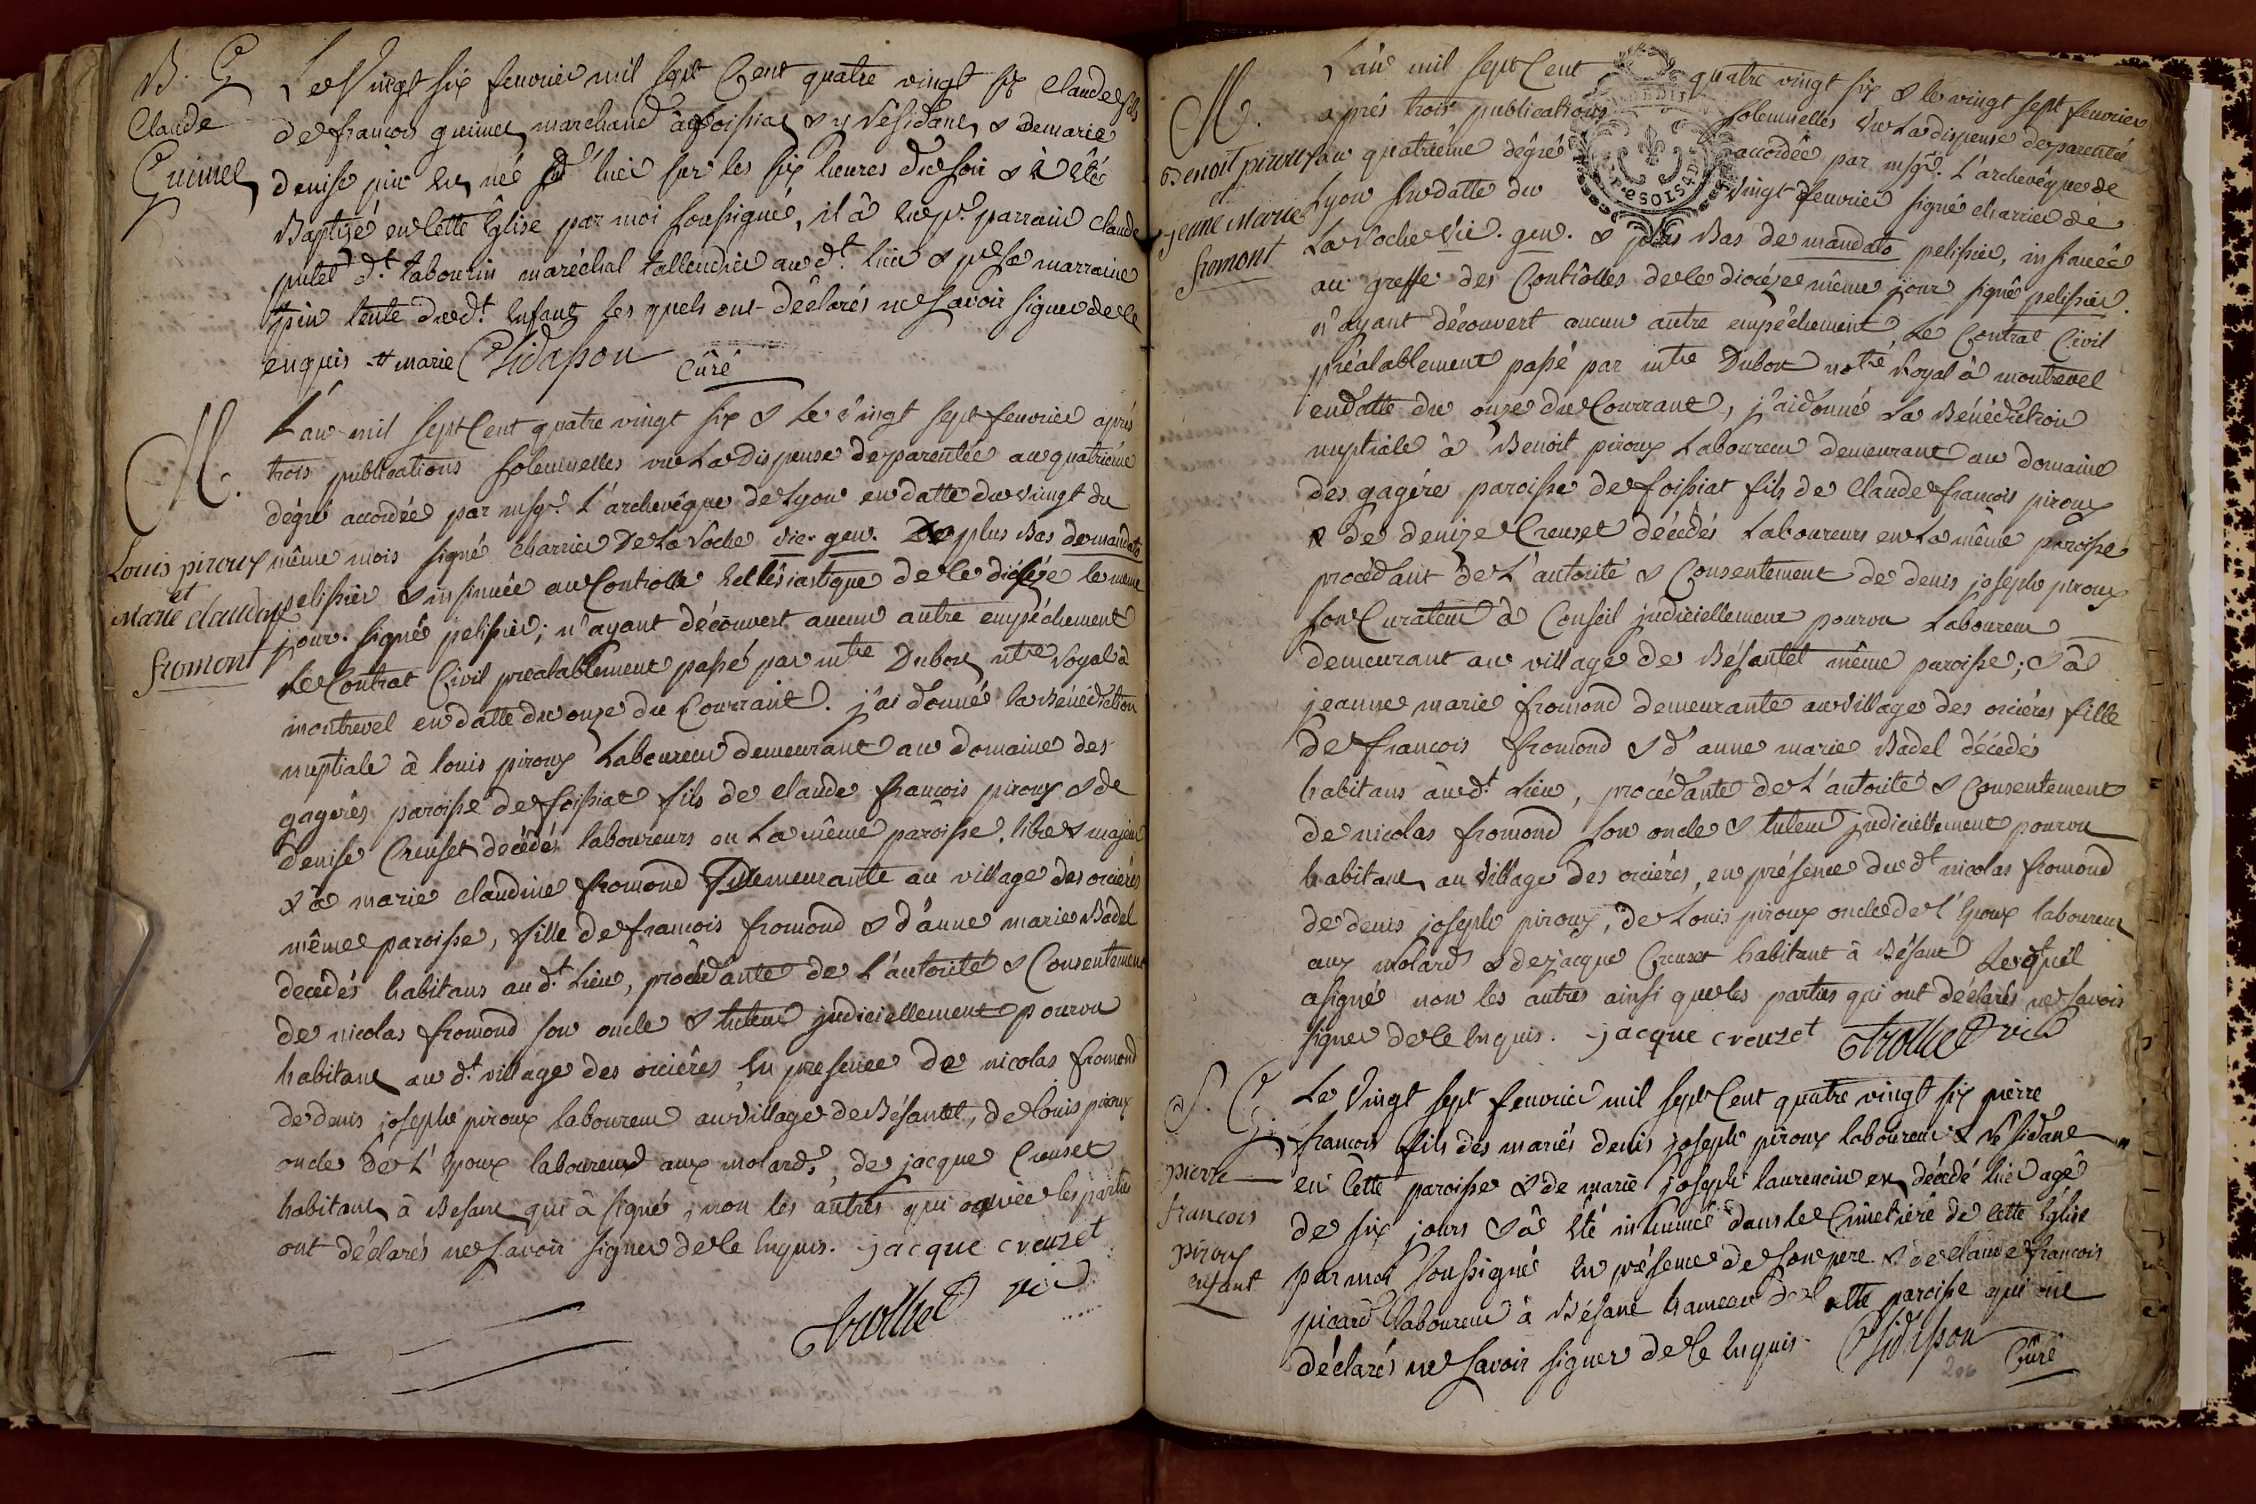 B. G
Claude
Guinet
Le Vingt six fevrier mil sept Cent quatre vingt six Claude fils
de francois guinet marchand à foissiat & y Résidant & de marie
denise pin est né hier sur les six heures du soir & à été
Baptizé en cette Église par moi soussigné, il à eu pr. parrain Claude
putet dt. tabourin maréchal tallendier au dt. lieu & pr. marraine
# pin tente dud.t Enfant les quels ont déclarés ne savoir signer de ce
enquis # marie Chidapson Curé
M.
Louis piroux
et
Marie claudine
fromont
L'an mil sept Cent quatre vingt six & Le vingt sept fevrier après
trois publications solemnelles vu La dispense de parentée au quatrième
dégré accordée par msgr. L'archevêque de Lyon en datte du vingt du
même mois signé charrier De La Roche vic. gen. & plus Bas de mandato
pelissier & insinuée au Controlle Ecclésiastique de ce diocèze le même
jour. signé pelissier; n'ayant découvert aucun autre empéchement
Le Contrat Civil prealablement passé par mtre Dubost ntre Royal à
montrevel en datte du onze du Courrant. j'ai donné la Bénédiction
nuptiale à louis piroux Laboureur demeurant au domaine des
gagères paroisse de foissiat fils de claude francois piroux & de
denise Creuset décédés laboureurs en La même paroisse. libre & majeur
& à marie claudine fromond demeurante au village des orcières
même paroisse, fille de francois fromond & d'anne marie Badel
decédés habitans au dt. Lieu, procédante de L'autorité & Consentement
de nicolas fromond son oncle & tuteur judiciellement pourvu
habitant au dt. village des orcières en presence de nicolas fromond
de denis joseph piroux laboureur au village de Bésantet, de louis piroux
oncle de L'Epoux laboureur aux molards, de jacque Creuset
habitant à Besant qui à signé, non les autres qui avec les parties
ont déclarés ne savoir signer de ce Enquis. jacque creuzet
trolliet vic
M.
Benoit piroux
et
jeanne Marie
fromont
L'an mil sept Cent quatre vingt six & le vingt sept fevrier
après trois publications solemnelles Vu La dispense de parentée
au quatrième dégré accordée par msgr. L'archevêque de
Lyon en datte du Vingt fevrier signé charrier de
La Roche Vic. gen. & plus Bas de mandato pelissier, insinuée
au greffe des Controlles de ce diocèze même jour signé pelissier.
n'ayant découvert aucun autre empéchement, Le Contrat Civil
préalablement passé par mtre Dubost notre Royal à montrevel
en datte du onze du Courrant, j'ai donné La Bénédiction
nuptiale à Benoit piroux Laboureur demeurant au domaine
des gagères paroisse de foissiat fils de Claude francois piroux
& de denize Creuset décédés Laboureurs en La même paroisse
procédant de L'autorité & Consentement de denis joseph piroux
son Curateur à Conseil judiciellement pourvu Laboureur
demeurant au village de Bésantet même paroisse; & à
jeanne marie fromond demeurante au village des orcières fille
de francois fromond & d'anne marie Badel décédés
habitans au dt. Lieu, procédante de L'autorité & Consentement
de nicolas fromond son oncle & tuteur judiciellement pourvu
habitant au village des orcières, en présence du dt nicolas fromond
de denis joseph piroux, de Louis piroux oncle de l'Epoux laboureur
aux molards & de jacque Creuset habitant à Bésant Lequel
a signé non les autres ainsi que les parties qui ont déclarés ne savoir
signer de ce Enquis. jacque creuzet trolliet vic
S. G
pierre
francois
piroux
enfant
Le Vingt sept fevrier mil sept Cent quatre vingt six pierre
francois fils des mariés denis joseph piroux laboureur & Résidant
en cette paroisse & de marie joseph laurencin est décédé hier agé
de six jours & à été inhumé dans le Cimetière de cette Église
par moi soussigné en présence de son pere & de claude francois
picard laboureur à Bésant hameau de cette paroisse qui ont
déclarés ne savoir signer de ce Enquis. Chidapson Curé
206